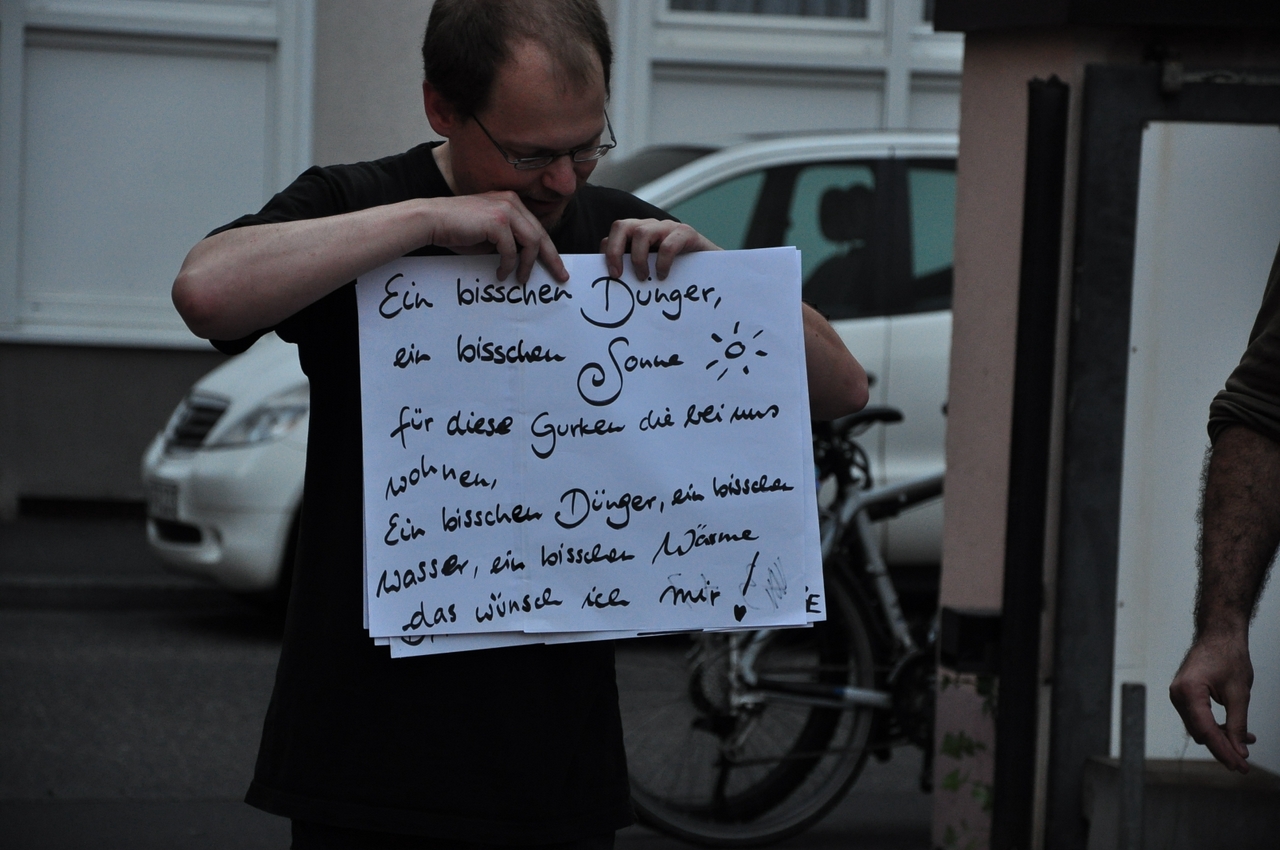 Ein bisschen Dünger,
ein bisschen Sonne
für diese Gurken die bei uns
wohnen,
Ein bisschen Dünger, ein bisschen
wasser, ein bisschen Wärme
das wünsch ich mir!